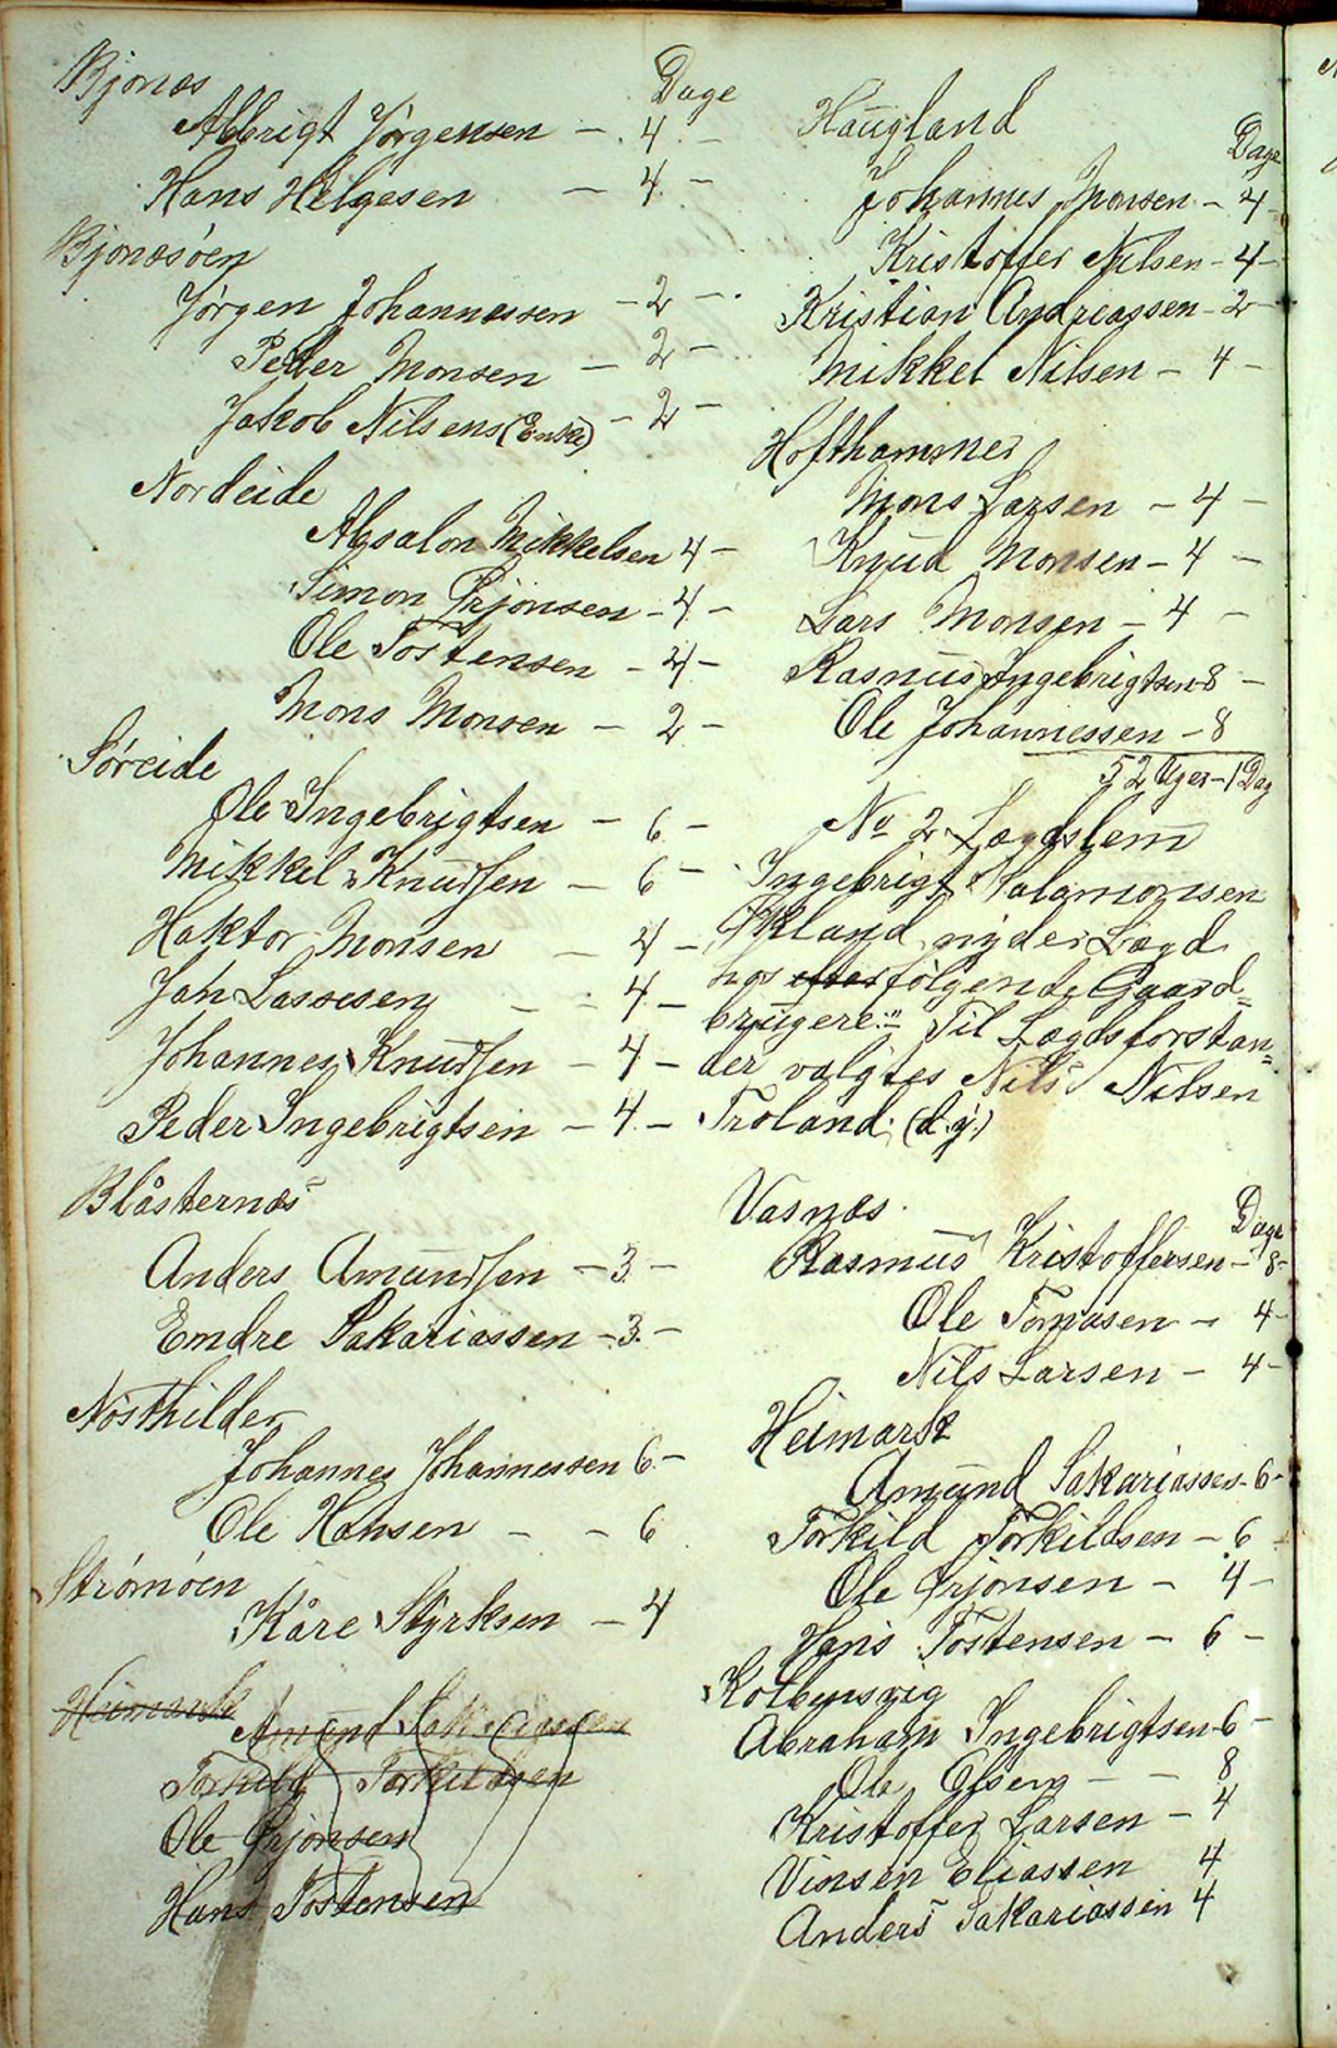 Bjonæs
Dage
Abbrigt Jörgensen - 4 -
Hans Helgesen - 4 -
Bjonæsöen
Jörgen Johannessen - 2 -
Peder Monsen - 2 -
Jakob Nilsens (Enke) - 2 -
Nordeide
Absalon Mikkelsen 4 -
Simon Brjonsen - 4 -
Ole Tostensen - 4 -
Mons Monsen - 2 -
Söreide
Ole Ingebrigtsen - 6 -
Mikkel Knudsen - 6 -
Haktor Monsen - 4 -
Jan Lassesen - 4 -
Johannes Knudsen - 4 -
Peder Ingebrigtsen - 4 -
Blåsternæs
Anders Amundsen - 3 -
Emdre Sakariassen - 3 -
Nösthilder
Johannes Johannessen 6 -
Ole Hansen - - 6
Strömöen
Kåre Styrksen - 4
Heimark
Amund Sakariassen
Torkild Torkildsen
Ole Brjonsen
Hans Tostensen
Haugland
Dage
Johannes Monsen - 4 -
Kristoffer Nilsen - 4 -
Kristian Andreassen - 2 -
Mikkel Nilsen - 4 -
Hofthammer
Mons Larsen - 4 -
Knud Monsen - 4 -
Lars Monsen - 4 -
Rasmus Ingebrigtsen - 8 -
Ole Johannessen - 8
52 Uger - 1 Dag
No 2 Lægdslem
Ingebrigt Salamonsen
Ökland nyder Lægd
hos efter følgende Gaard=
brugere:" Til Lægdsforstan=
der valgtes Nils Nilsen
Troland. (d.y.)
Vasnæs
Dage
Rasmus Kristoffersen - 8 -
Ole Tomasen - 4 -
Nils Larsen - 4 -
Heimark
Amund Sakariassen - 6 -
Torkild Torkildsen - 6
Ole Brjonsen - 4 -
Hans Tostensen - 6 -
Kolbensvig
Abraham Ingebrigtsen - 6 -
Ole Olsen - - 8
Kristoffer Larsen - 4
Vinsen Eliassen 4
Anders Sakariassen 4